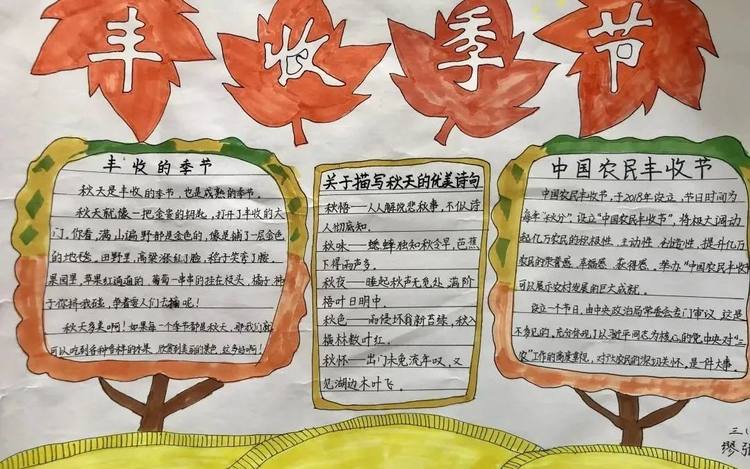 丰收季节
丰收的季节
秋天是丰收的季节,也是成熟的季节。
秋天就像一把金黄的钥匙,打开了丰收的大
门。你看,满山遍野都是金色的,像是铺了一层金色
的地毯,田野里,高粱涨红了脸,稻子笑弯了腰。
果园里,苹果红通通的,葡萄一串串的挂在枝头,橘子
你挤我碰,争着要人们去摘呢!
秋天多美啊!如果每一个季节都是秋天,那我们就
可以吃到各种各样的水果,欣赏到美丽的景色,这多好啊!
关于描写秋天的优美诗句
秋悟——人人解说悲秋事,不似诗
人彻底知。
秋咏——蟋蟀独知秋令早,芭蕉
下得雨声多。
秋夜——睡起秋声无觅处,满阶
梧叶月明中。
秋色——雨侵坏甃新苔绿,秋入
横林数叶红。
秋怀——出门未免流年叹,又
见湖边木叶飞。
中国农民丰收节
中国农民丰收节,于2018年设立,节日时间为
每年“秋分”。设立“中国农民丰收节”,将极大调动
起亿万农民的积极性、主动性、创造性,提升亿万
农民的荣誉感、幸福感、获得感。举办“中国农民丰收
可以展示农村发展的巨大成就。
设立一个节日,由中央政治局常委会专门审议,这是
不多见的,充分体现了以习近平同志为核心的党中央对“三
农”工作的高度重视,对广大农民的深切关怀,是一件大事。
三(
缪